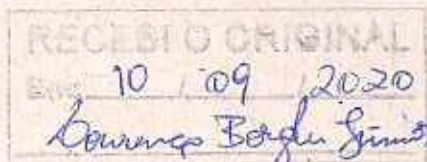 RECEBI O ORIGINAL
Em: 10 / 09 / 2020
Lourenço Borghi Júnior